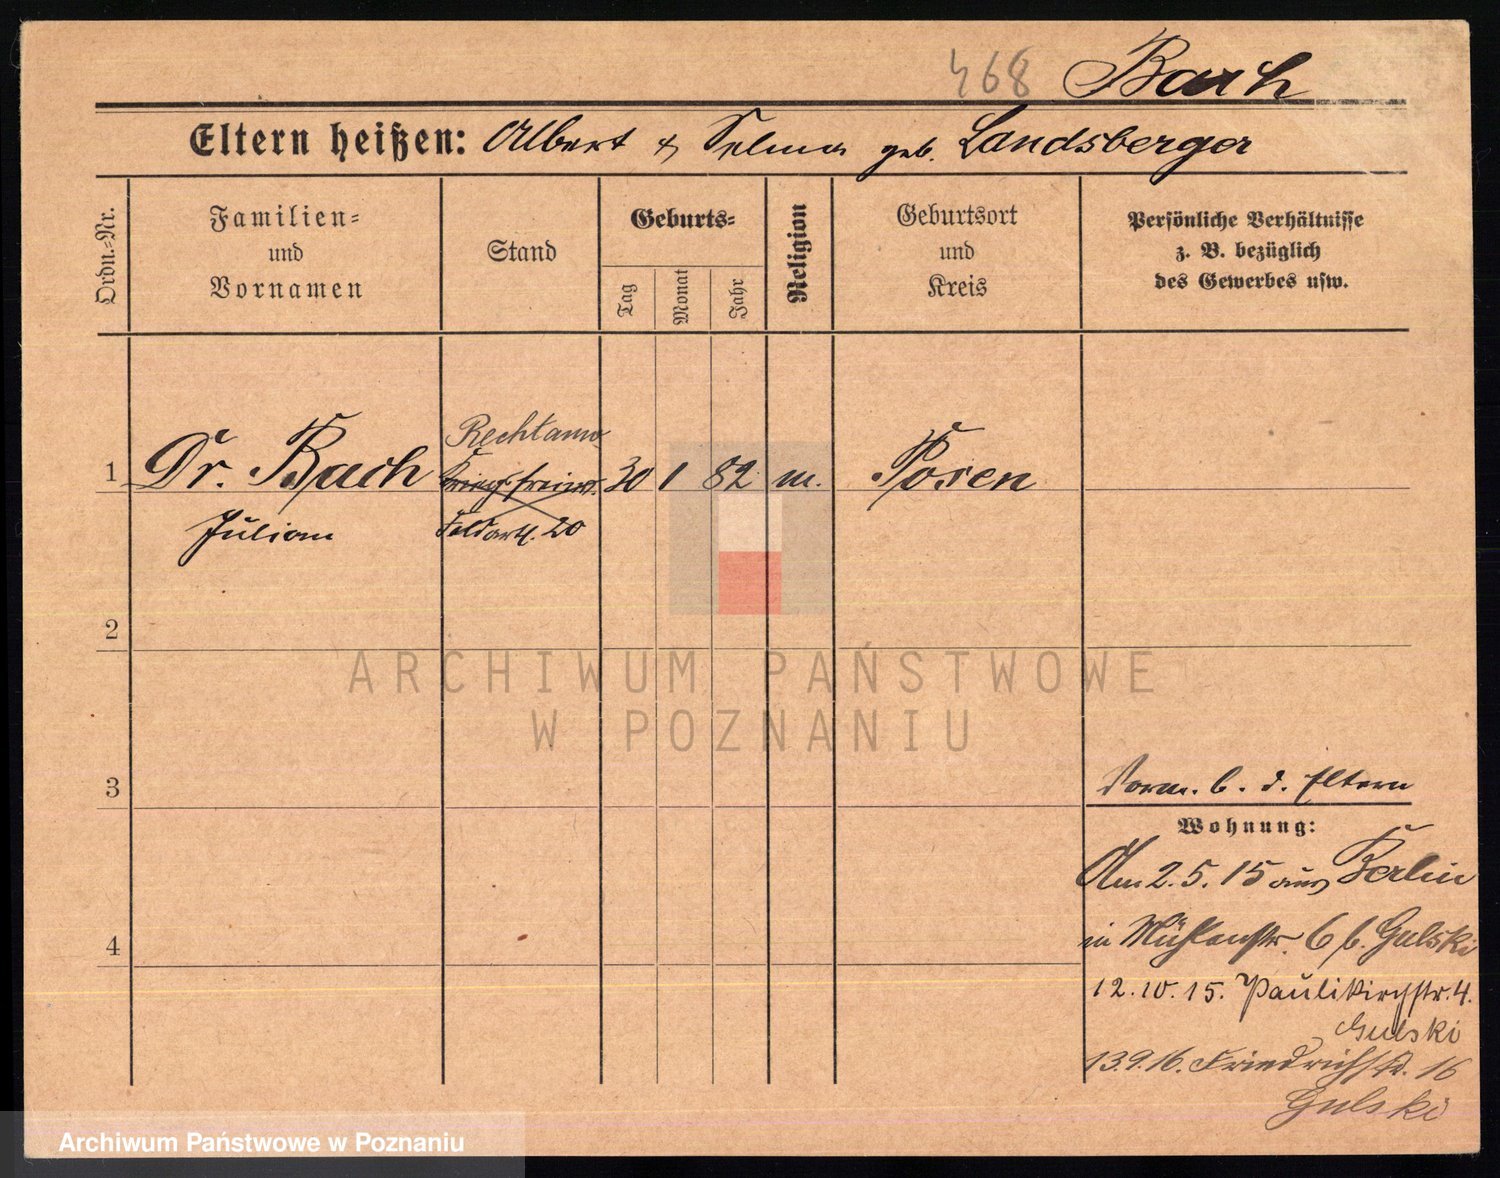 468 Bach
Eltern heißen: Albert & Selma geb. Landsberger
Ordn.-Nr.
Familien-
und
Vornamen
Stand
Geburts-
Tag
Monat
Jahr
Religion
Geburtsort
und
Kreis
Persönliche Verhältnisse
z. B. bezüglich
des Gewerbes usw.
Rechtanw.
1 Dr. Bach Kriegsfreiw. 30 1 82 m. Posen
Julian Feldart. 20
2
ARCHIWUM PAŃSTWOWE
W POZNANIU
3
Vorm. b. d. Eltern
Wohnung:
Am 2.5.15 aus Berlin
4
in Mühlenstr. 6 b. Gulski
12.10.15. Paulikirchstr. 4.
Gulski
13.9.16. Friedrichstr. 16
Gulski
Archiwum Państwowe w Poznaniu